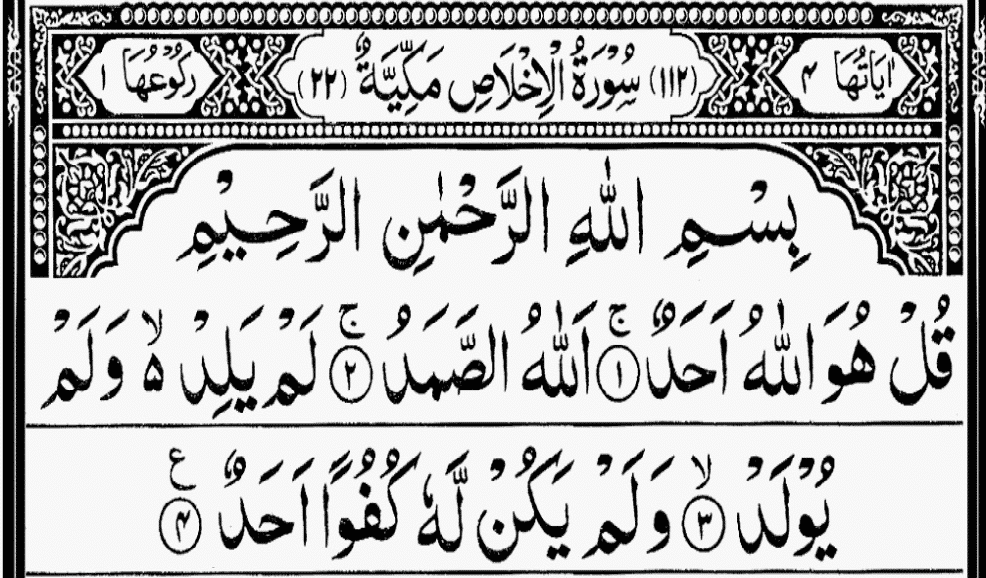 اٰيَاتُهَا ۴ (۱۱۲) سُوْرَةُ الْاِخْلَاصِ مَكِّيَّةٌ (۲۲) رُكُوْعُهَا ۱
بِسْمِ اللّٰهِ الرَّحْمٰنِ الرَّحِيْمِ
قُلْ هُوَ اللّٰهُ اَحَدٌ ۚ ۱ اَللّٰهُ الصَّمَدُ ۚ ۲ لَمْ يَلِدْ ۙ۵ وَلَمْ
يُوْلَدْ ۙ ۳ وَلَمْ يَكُنْ لَّهٗ كُفُوًا اَحَدٌ ع ۴